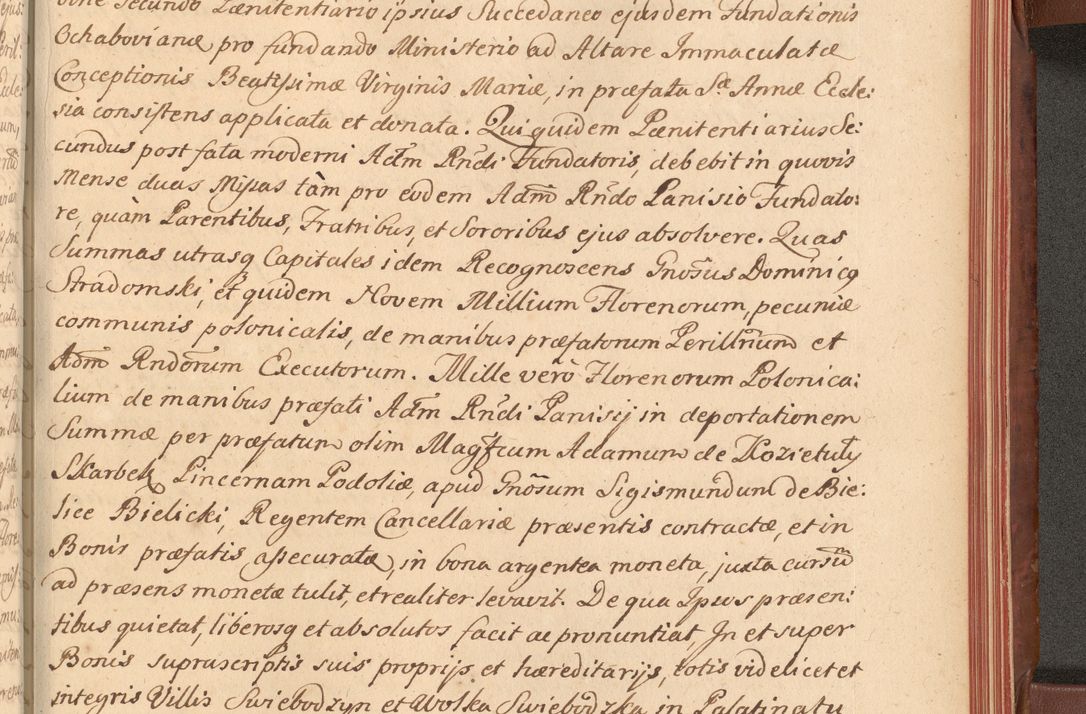 vine Secundo Pænitentiario ipsius Succedaneo ejusdem Fundationis
Ochabovianæ pro fundando Ministerio ad Altare Immaculatæ
Conceptionis Beatissimæ Virginis Mariæ, in præfata Sæ Annæ Eccle:
sia consistens applicata et donata. Qui quidem Pænitentiarius Se:
cundus post fata moderni Adm̃ Rñdi Fundatoris, debebit in quovis
Mense duas Missas tàm pro eodem Adm̃ Rñdo Panisio Fundato:
re, quàm Parentibus, Fratribus, et Sororibus ejus absolvere. Quas
Summas utrasq Capitales idem Recognoscens Gnõsus Dominicq
Stradomski, et quidem Novem Millium Florenorum, pecuniæ
communis polonicalis, de manibus præfatorum Perillrium et
Adm̃ Rndorum Executorum. Mille verò Florenorum Polonica:
lium de manibus præfati Adm̃ Rñdi Panisij in deportationem
Summæ per præfatum olim Magfcum Adamum de Kozietuły
Skarbek Pincernam Podoliæ, apud Gnõsum Sigismundum de Bie:
lice Bielicki, Regentem Cancellariæ præsentis contractæ, et in
Bonis præfatis assecuratæ, in bona argentea moneta, juxta cursũm
ad præsens monetæ tulit, et realiter levavit. De qua Ipsos præsen:
tibus quietat, liberosq et absolutos facit ac pronuntiat, In et super
Bonis suprascriptis suis proprijs et hæreditarijs, totis videlicet et
integris Villis Swiebodzyn et Wolka Swiebodzka in Palatinatu